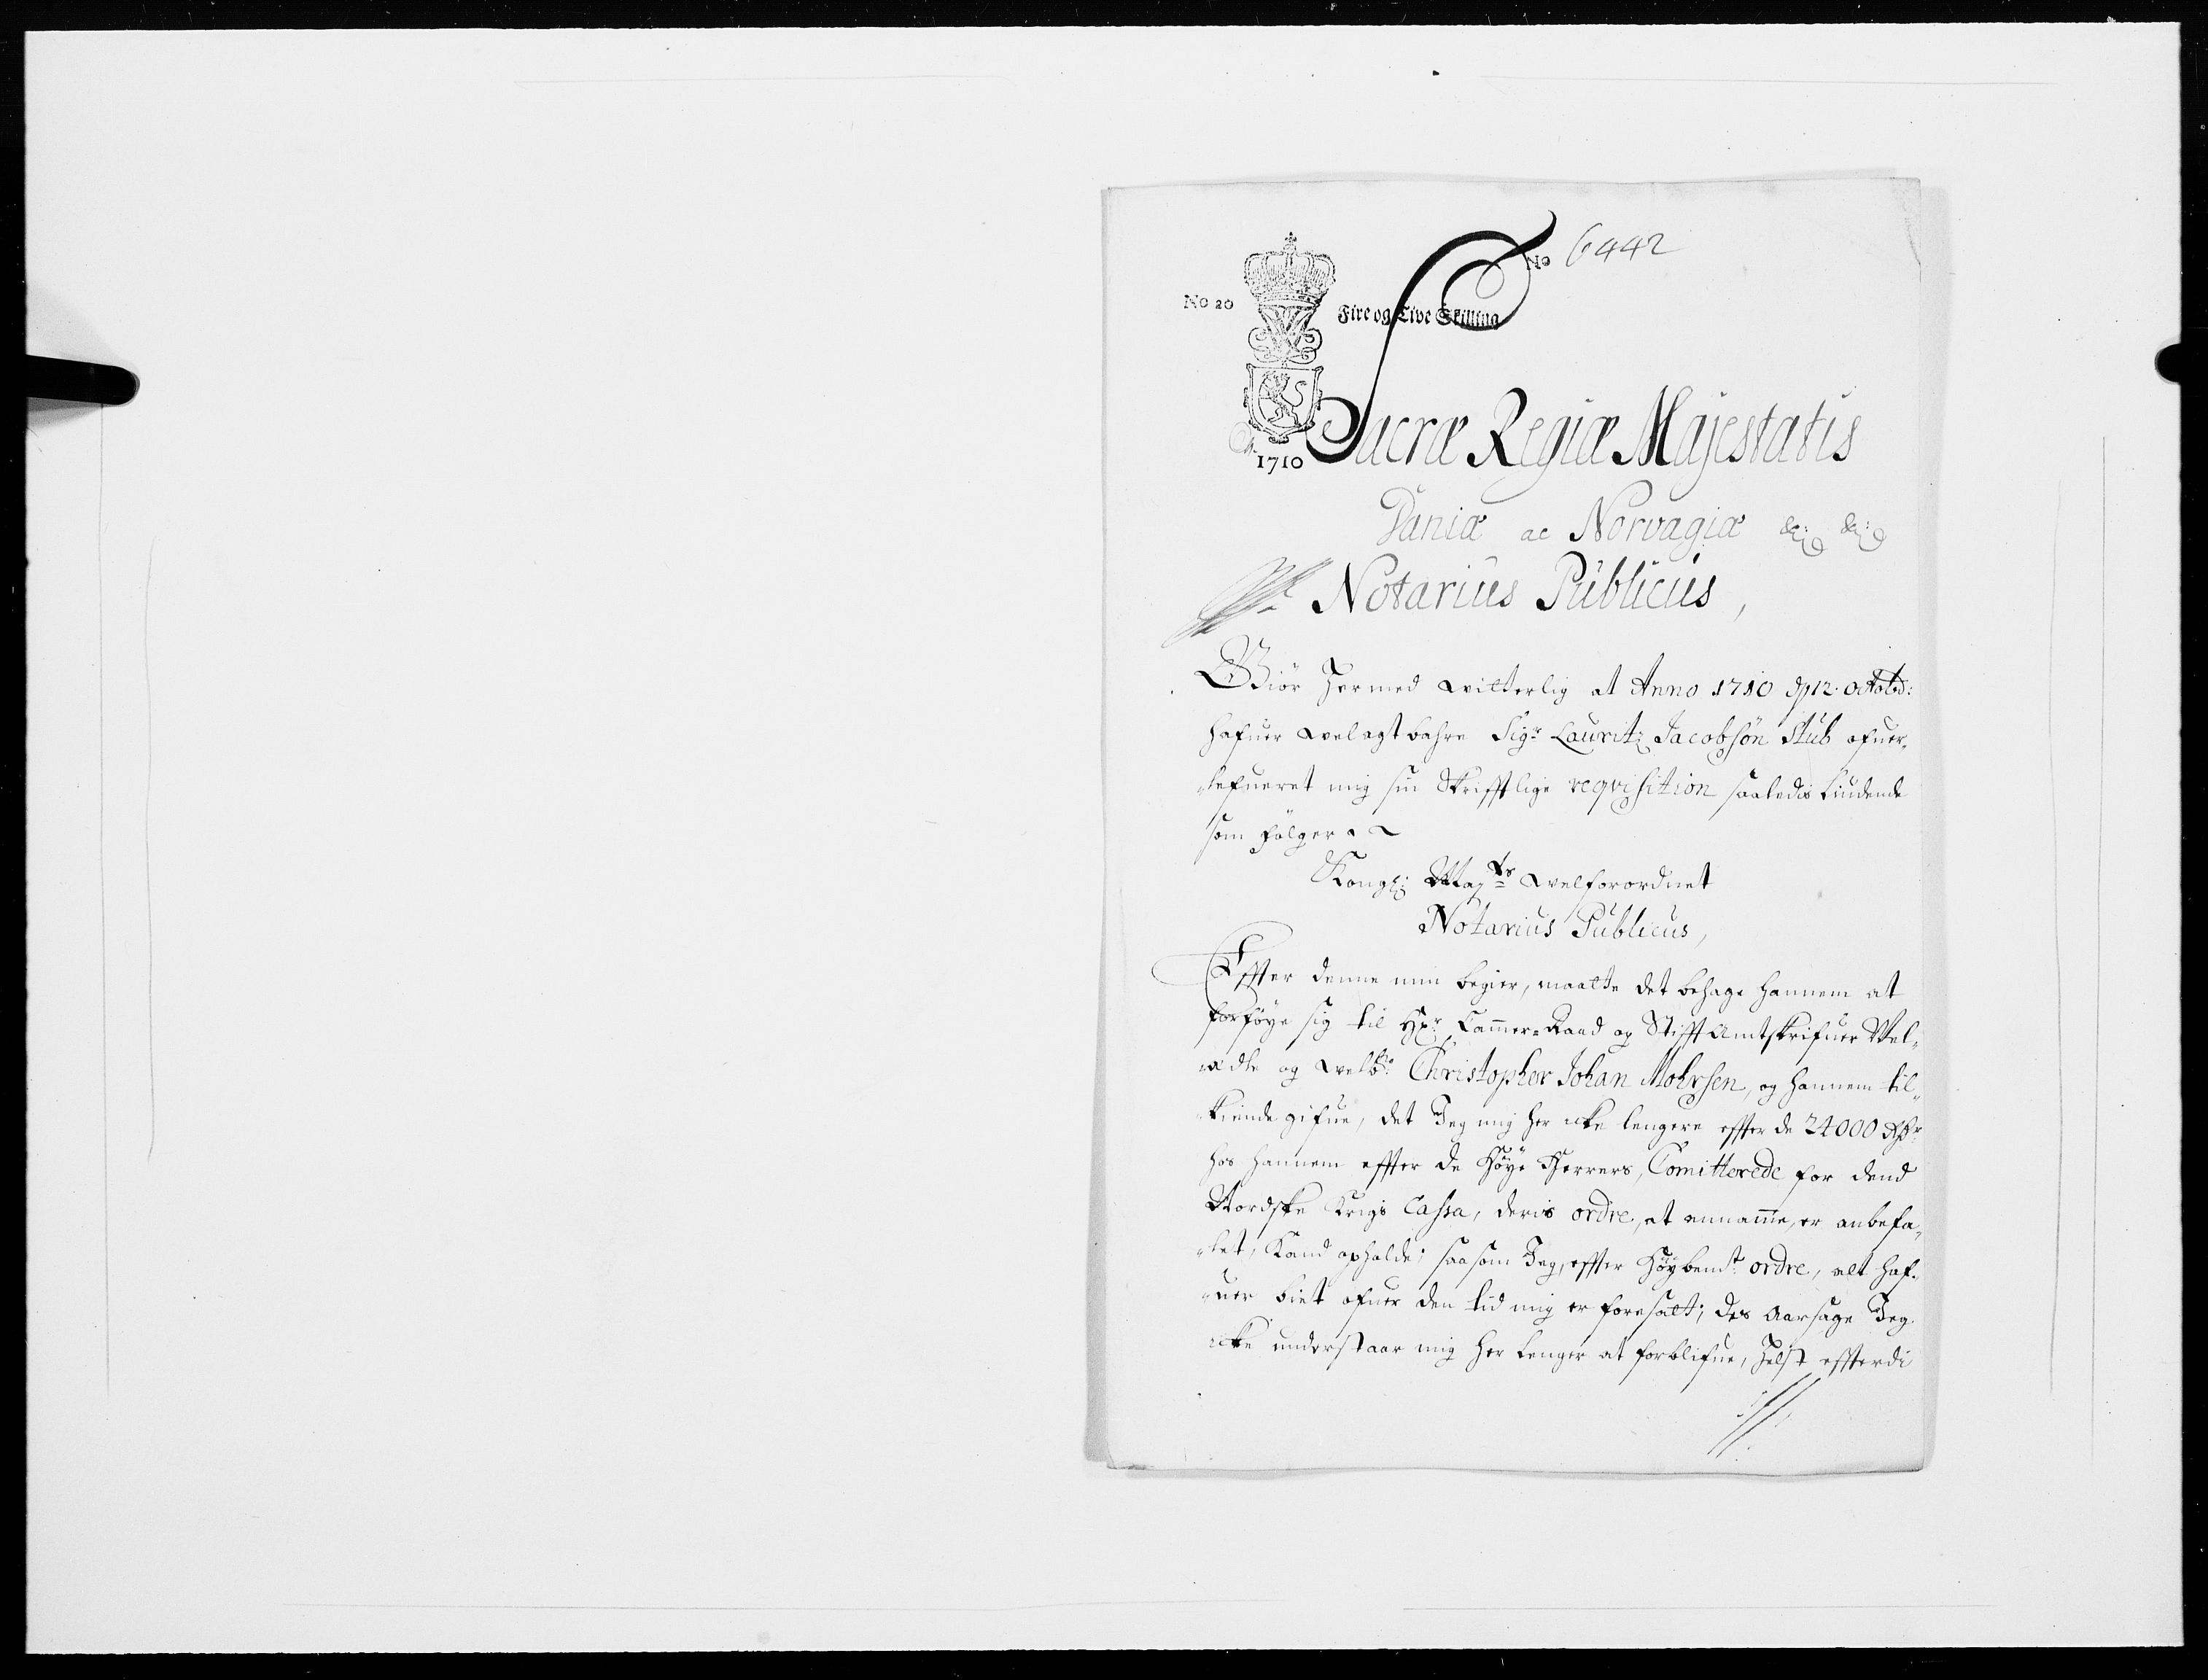 No 6442
No 20
Fire og Tive Skilling
1710
Sacræ Regiæ Majestatis
Daniæ ac Norvagiæ &c: &c:
Notarius Publicus,
Giör Hermed witterlig at Anno 1710 d 12. octob:
hafuer welagtbahre Sigr Lauritz Jacobsøn Stub ofuer-
-lefueret mig sin Skrifftlige reqvisition saaledis liudende
som fölger
Kongl: Maÿts welforordnet
Notarius Publicus,
Effter denne min begier, maatte det behage hannem at
forföye sig til Hr Cammer-Raad og Stifft Amtskrifuer Wel-
-ædle og welb: Christopher Johan Mohrsen, og hannem til-
-kiende gifue, det Jeg mig her icke lengere effter de 24000 Rdr
hos hannem effter de Höye Herrers, Comitterede for dend
Nordske Krigs Cassa, deris ordre, at annamme, er anbefa-
-let, Kand opholde; saasom Jeg, effter Höybemt ordre, alt haf-
-uer biet ofuer den tid mig er foresatt; des Aarsage Jeg
icke understaar mig her lenger at forblifue, Helst effterdi